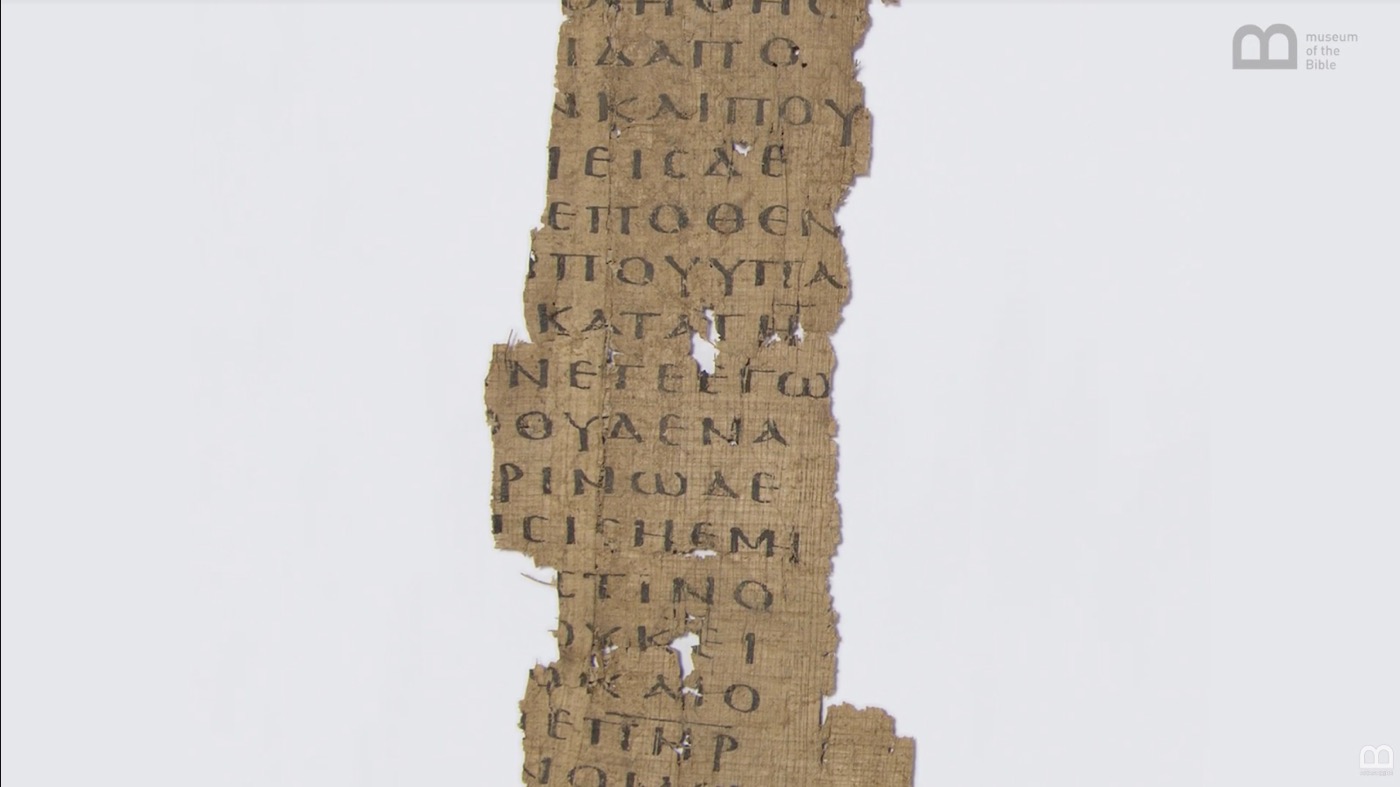 ΛΗΘΗϹ
ΙΔΑΠΟ
ΝΚΑΙΠΟΥ
ΙΕΙϹΔΕ
ΕΠΟΘΕΝ
ΠΟΥΥΠΑ
ΚΑΤΑΤΗ
ΝΕΤΕΕΓΩ
ΟΥΔΕΝΑ
ΡΙΝΩΔΕ
ΙϹΙϹΗΕΜΙ
ϹΤΙΝΟ
ΟΥΚΕΙ
ΚΑΙΟ
ΕΠΗΡ
museum
of the
Bible